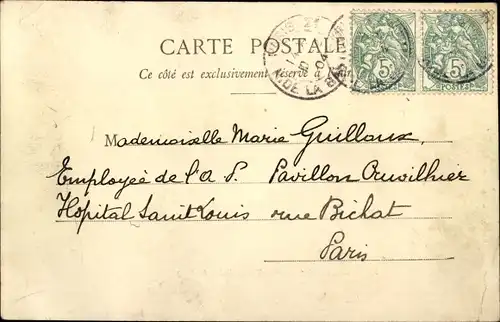 CARTE POSTALE
Ce côté est exclusivement réservé à
PARIS 21
04
DE LA
5c
POSTES
5c
POSTES
Mademoiselle Marie Guilloux,
Employée de l'A P. Pavillon Cruvilhier
Hôpital Saint Louis rue Bichat
Paris